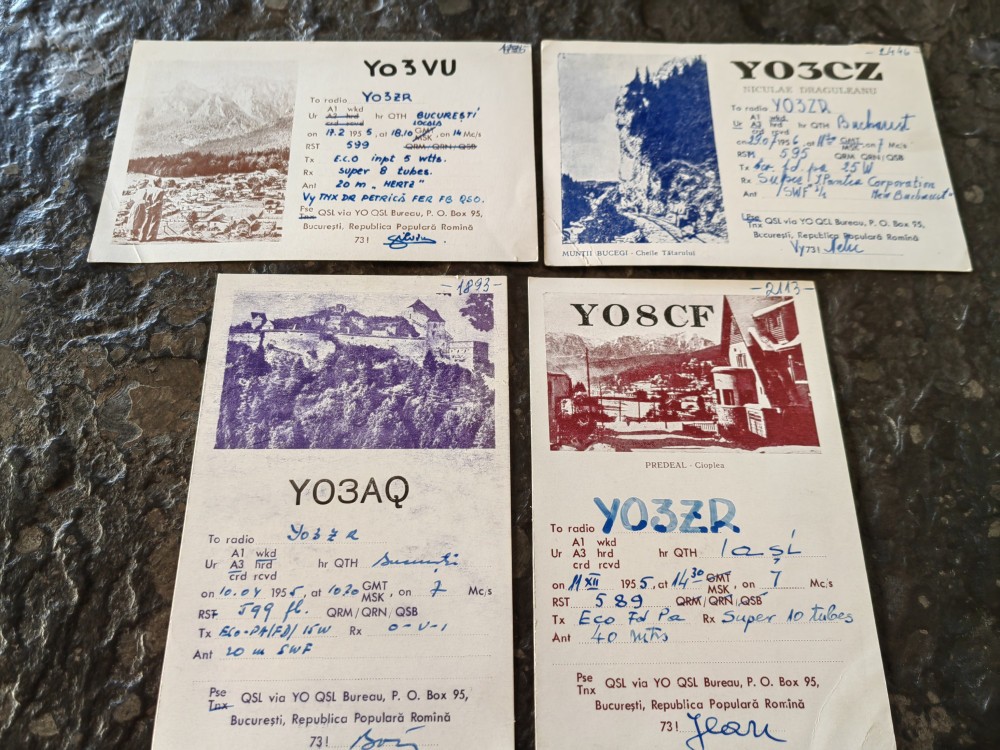 YO3VU
To radio YO3ZR
A1 wkd
Ur A3 hrd hr QTH BUCUREȘTI
crd rcvd LOCALĂ
on 17.2 1955, at 18.10 GMT MSK, on 14 Mc/s
RST 599 QRM/QRN/QSB
Tx E.C.O inpt 5 wtts.
Rx super 8 tubes.
Ant 20 m „HERTZ"
Vy TNX DR PETRICĂ FER FB QSO.
Pse
Tnx QSL via YO QSL Bureau, P. O. Box 95,
București, Republica Populară Romînă
73!
-2446-
YO3CZ
NICULAE DRAGULEANU
To radio YO3ZR
A1 wkd
Ur A3 hrd hr QTH Bucharest
crd rcvd
on 1956, at GMT MSK, on 7 Mc/s
RSM 595 QRM QRN/QSB
Tx eco fd pa 25W
Rx Super
Ant SWF
Pse
Tnx QSL via YO QSL Bureau, P. O. Box 95,
București, Republica Populară Romînă
Vy 73! Nelu
MUNȚII BUCEGI - Cheile Tătarului
-1893-
YO3AQ
To radio YO3ZR
A1 wkd
Ur A3 hrd hr QTH București
crd rcvd
on 10.04 1955, at 1020 GMT MSK, on 7 Mc/s
RST 599 fb. QRM/QRN/QSB
Tx ECO-PA/FD/15W Rx 0-V-1
Ant 20 m SWF
Pse
Tnx QSL via YO QSL Bureau, P. O. Box 95,
București, Republica Populară Romînă
73!
-2113-
YO8CF
PREDEAL - Cioplea
To radio YO3ZR
A1 wkd
Ur A3 hrd hr QTH Iași
crd rcvd
on 11 XII 1955, at 14 30 GMT MSK, on 7 Mc/s
RST 589 QRM/QRN/QSB
Tx Eco Fd Pa Rx Super 10 tubes
Ant 40 mtrs
Pse
Tnx QSL via YO QSL Bureau, P. O. Box 95,
București, Republica Populară Romînă
73! Jean